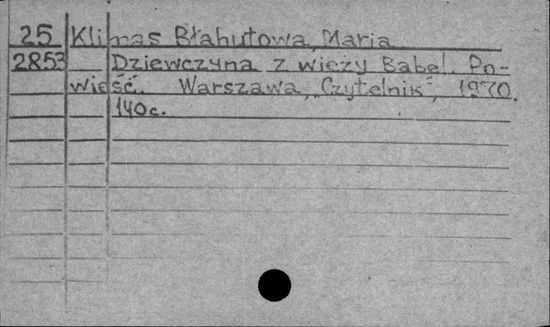 25 Klimas Błahutowa, Maria
2853 Dziewczyna z wieży Babel. Po-
wieść. Warszawa, „Czytelnik", 1970.
140c.